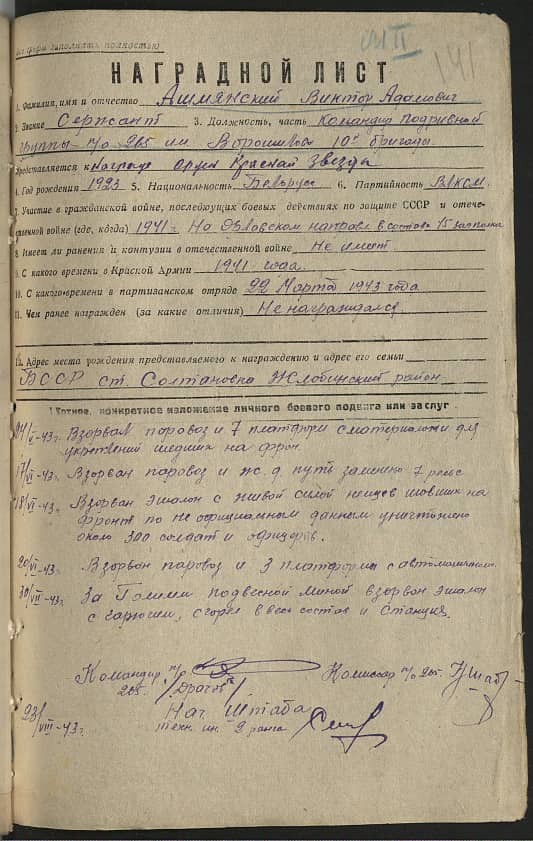 все формы заполнять полностью
141
НАГРАДНОЙ ЛИСТ
1. Фамилия, имя и отчество Ашмянский Виктор Адамович
2. Звание Сержант 3. Должность, часть Командир подрывной
группы п/о 265 им. Ворошилова 10й бригады.
Представляется к Награде Орден Красная Звезда
4. Год рождения 1923 5. Национальность Беларус 6. Партийность ВЛКСМ.
7. Участие в гражданской войне, последующих боевых действиях по защите СССР и отече-
ственной войне (где, когда) 1941 г. На Орловском направл. в составе 15
8. Имеет ли ранения и контузии в отечественной войне Не имеет
9. С какого времени в Красной Армии 1941 года.
10. С какого времени в партизанском отряде 22 Марта 1943 года
11. Чем ранее награжден (за какие отличия) Не награждался.
12. Адрес места рождения представляемого к награждению и адрес его семьи
БССР ст. Солтановка Жлобинский район
конкретное изложение личного боевого подвига или заслуг
Взорвал паровоз и 7 платформ с материалами для
укреплений шедших на фрон.
17/VI-43г. Взорван паровоз и ж.д. путь заменено 7 рельс
18/VI-43г. Взорван эшалон с живой силой немцев шовших на
фронт по не официальным данным уничтожено
около 300 солдат и офицеров.
20/VI-43г. Взорван паровоз и 3 платформы с автомашинами.
30/VII-43г. За Гомлем подвесной миной взорван эшалон
с горючим, сгорел весь состав и Станция.
Командир п/о
265 /Драгов/
Комиссар п/о 265.
23/VIII-43г. Нач. Штаба
техн. ин. 2 ранга